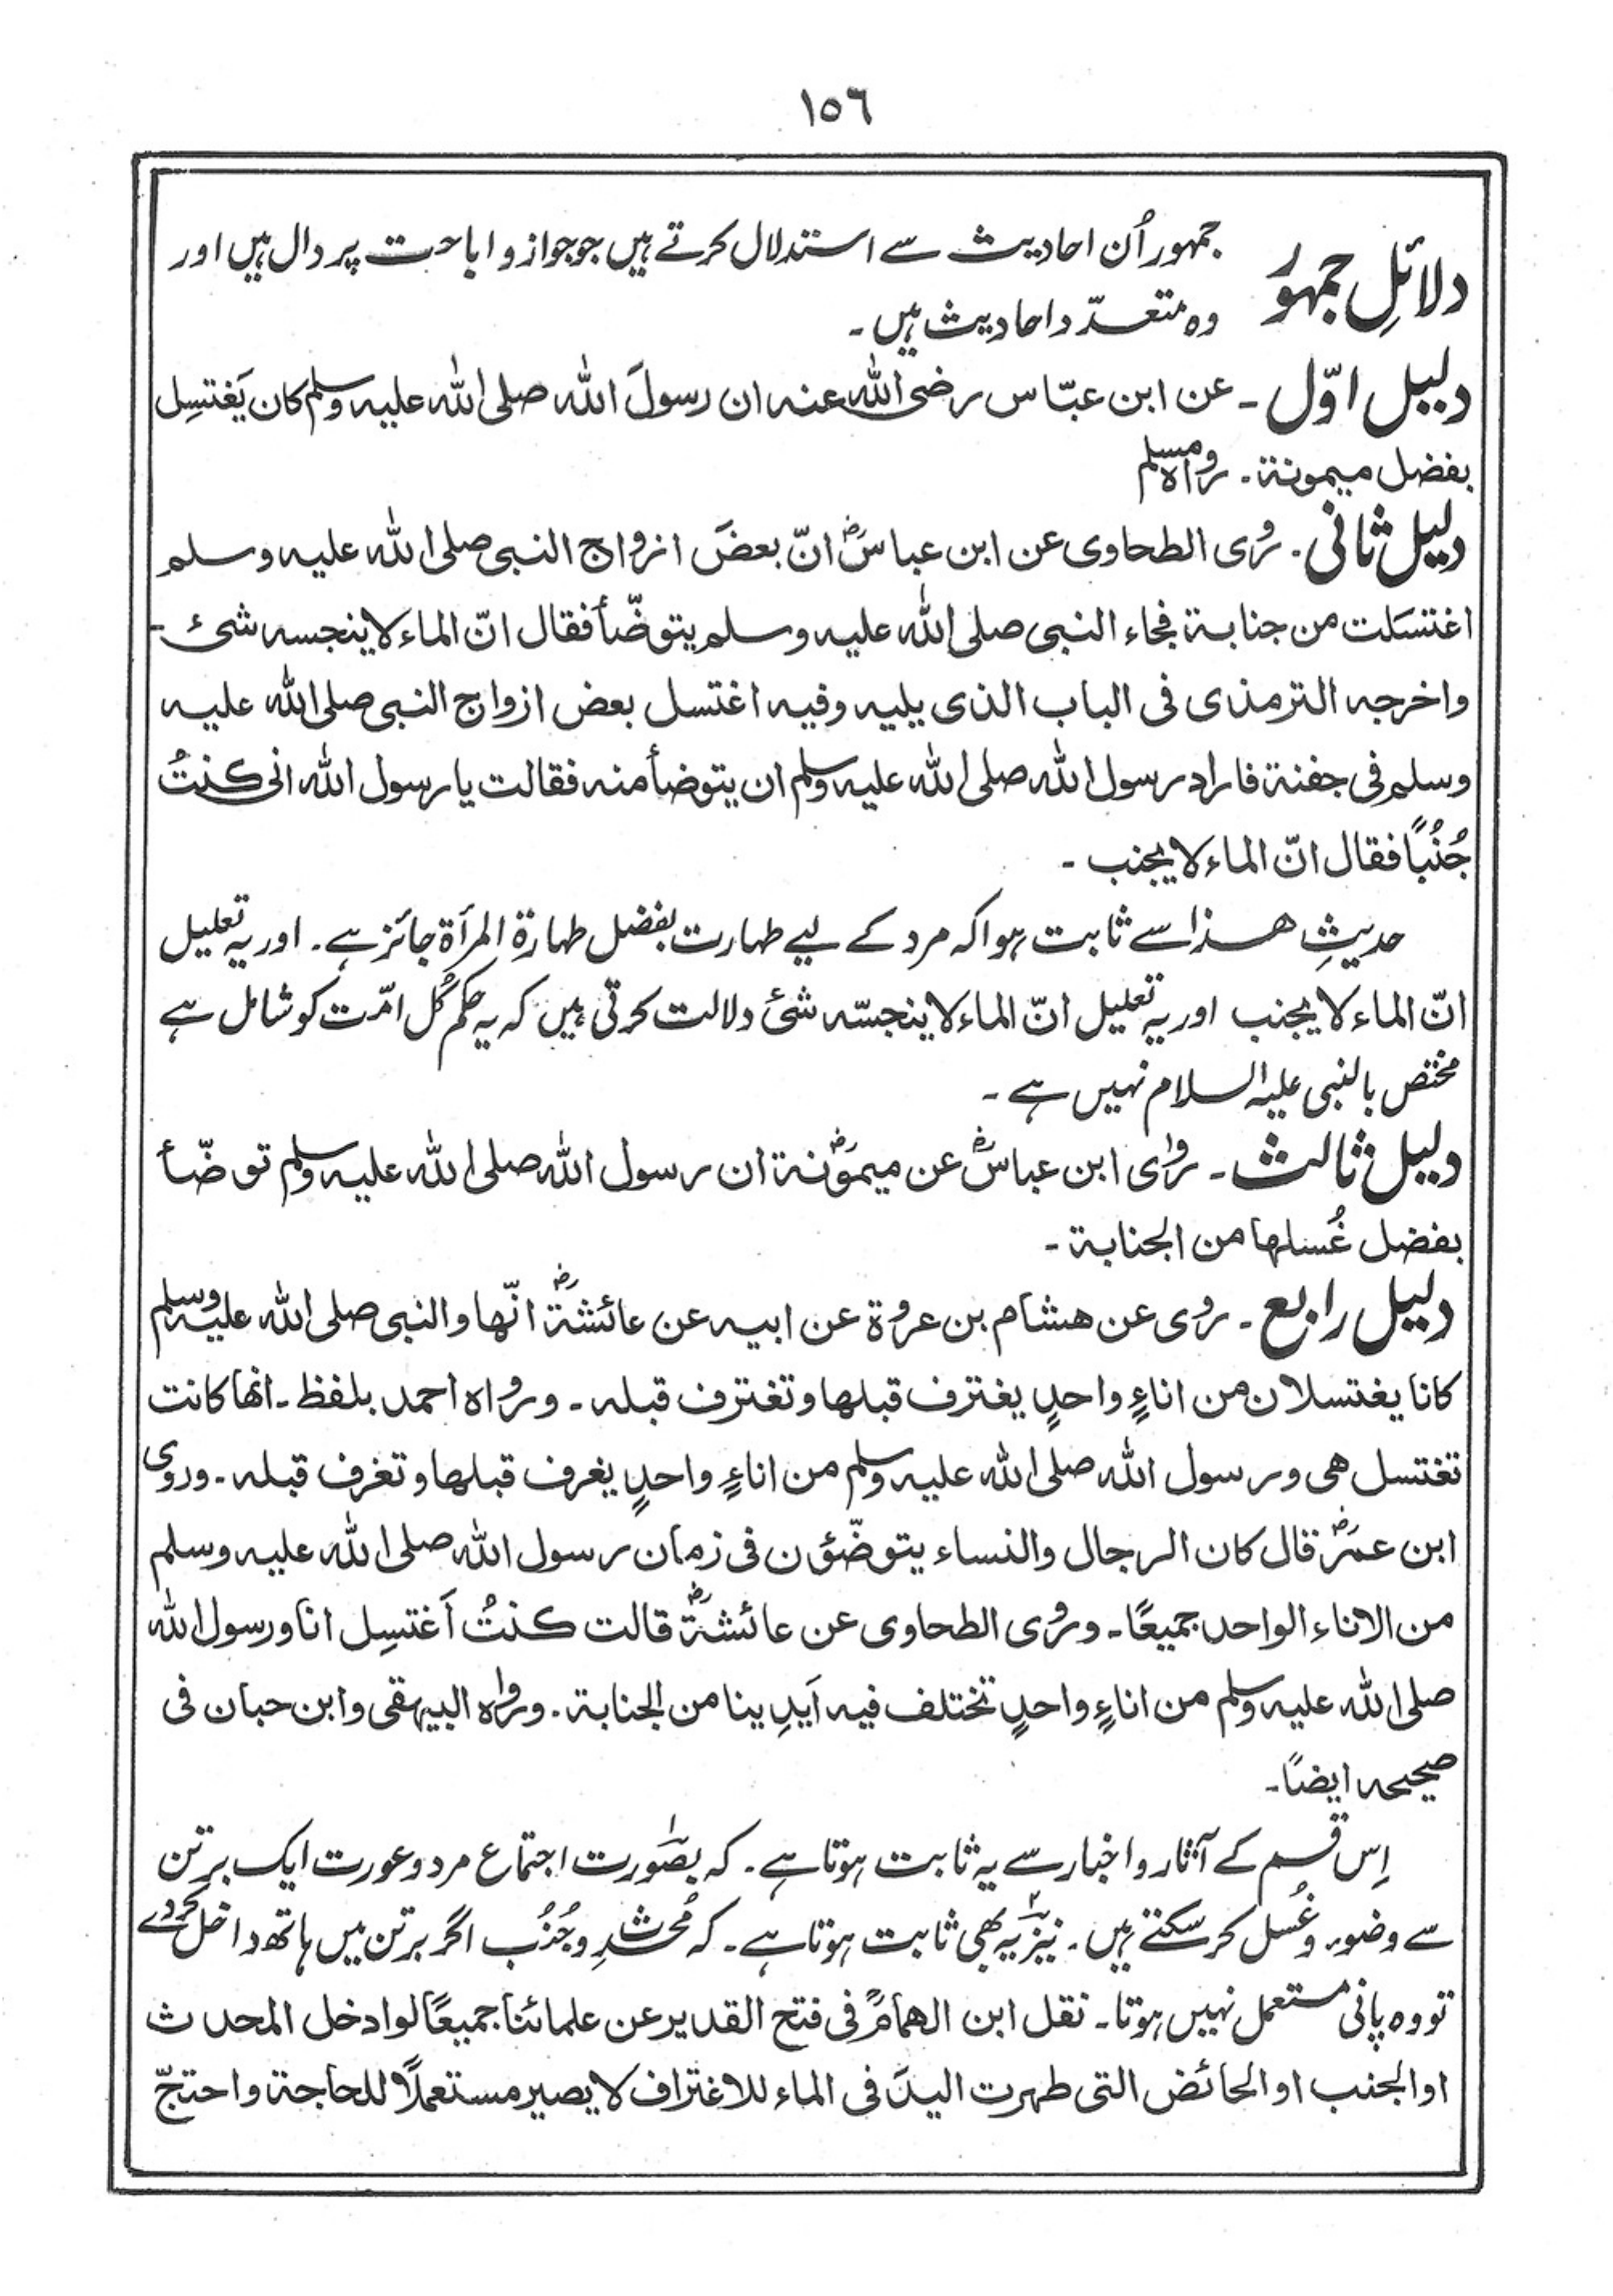 ١٥٦
دلائلِ جمہور جمہور اُن احادیث سے استدلال کرتے ہیں جو جواز و اباحت پر دال ہیں اور
وہ متعدّد احادیث ہیں ۔
دلیل اوّل ۔ عن ابن عبّاس رضی اللہ عنہ ان رسولَ اللہ صلی اللہ علیہ وسلم کان یَغتسِل
بفضل میمونۃ ۔ رواہ مسلم
دلیل ثانی ۔ رُوی الطحاوی عن ابن عباسؓ انّ بعضَ ازواج النبی صلی اللہ علیہ وسلم
اغتسَلت من جنابۃ فجاء النبی صلی اللہ علیہ وسلم یتوضّأ فقال انّ الماء لا ینجسہ شئ ۔
واخرجہ الترمذی فی الباب الذی یلیہ وفیہ اغتسل بعض ازواج النبی صلی اللہ علیہ
وسلم فی جفنۃ فاراد رسول اللہ صلی اللہ علیہ وسلم ان یتوضأ منہ فقالت یا رسول اللہ انی کنتُ
جُنُبًا فقال انّ الماء لا یجنب ۔
حدیثِ ھذا سے ثابت ہوا کہ مرد کے لیے طہارت بفضل طہارۃ المرأۃ جائز ہے ۔ اور یہ تعلیل
انّ الماء لا یجنب اور یہ تعلیل انّ الماء لا ینجسّہ شئ دلالت کرتی ہیں کہ یہ حکم کُل امّت کو شامل ہے
مختص بالنبی علیہ السلام نہیں ہے ۔
دلیل ثالث ۔ روای ابن عباسؓ عن میمونۃؓ ان رسول اللہ صلی اللہ علیہ وسلم توضّأ
بفضل غُسلھا من الجنابۃ ۔
دلیل رابع ۔ روی عن ھشام بن عروۃ عن ابیہ عن عائشۃؓ انّھا والنبی صلی اللہ علیہ وسلم
کانا یغتسلان من اناءٍ واحدٍ یغترف قبلھا وتغترف قبلہ ۔ ورواہ احمد بلفظ ۔ انھا کانت
تغتسل ھی ورسول اللہ صلی اللہ علیہ وسلم من اناءٍ واحدٍ یغرف قبلھا وتغرف قبلہ ۔ وروی
ابن عمرؓ قال کان الرجال والنساء یتوضّؤن فی زمان رسول اللہ صلی اللہ علیہ وسلم
من الاناء الواحد جمیعًا ۔ ورُوی الطحاوی عن عائشۃؓ قالت کنتُ اَغتسِل انا ورسول اللہ
صلی اللہ علیہ وسلم من اناءٍ واحدٍ تختلف فیہ اَیدِینا من الجنابۃ ۔ ورواہ البیہقی وابن حبان فی
صحیحہ ایضًا ۔
اِس قسم کے آثار و اخبار سے یہ ثابت ہوتا ہے ۔ کہ بصورت اجتماع مرد و عورت ایک برتن
سے وضور و غُسل کر سکتے ہیں ۔ نیز یہ بھی ثابت ہوتا ہے ۔ کہ مُحدِث و جُنُب اگر برتن میں ہاتھ داخل کر دے
تو وہ پانی مستعمل نہیں ہوتا ۔ نقل ابن الھمامؒ فی فتح القدیر عن علمائنا جمیعًا لو ادخل المحدث
او الجنب او الحائض التی طہرت الیدَ فی الماء للاغتراف لا یصیر مستعملًا للحاجۃ واحتجّ